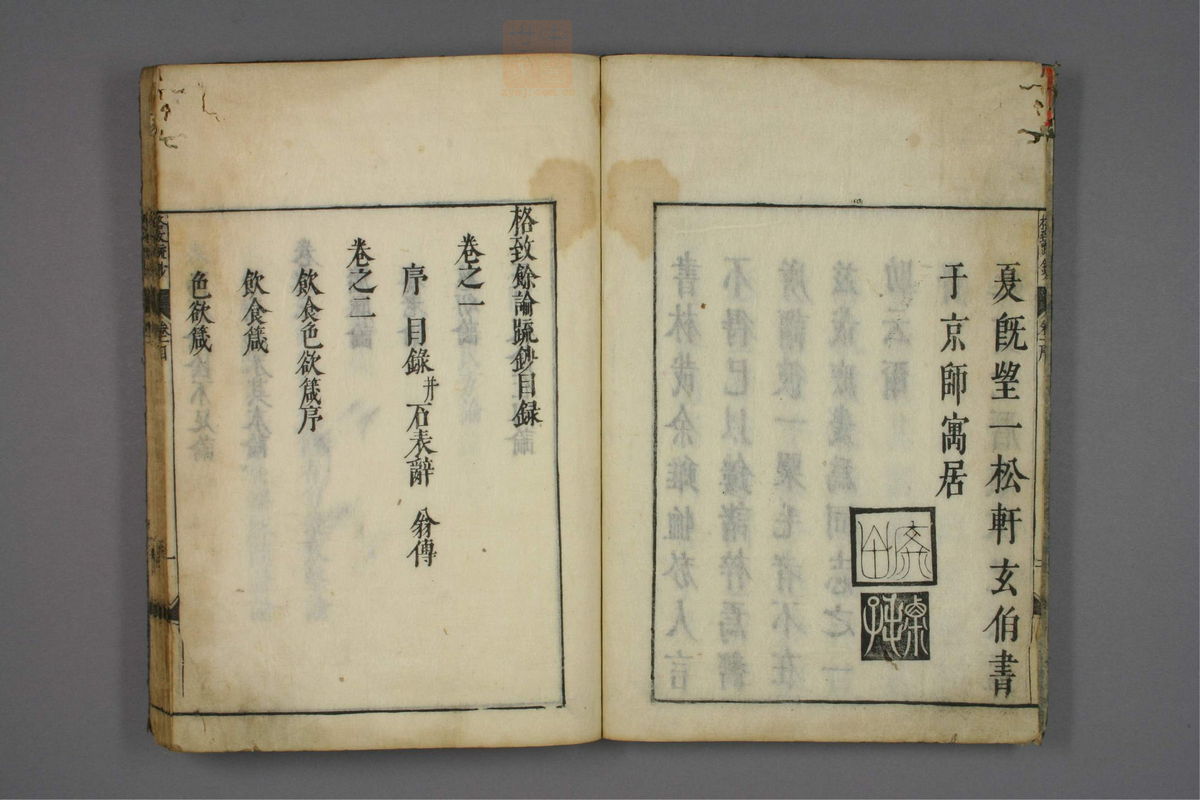 夏旣望一松軒玄伯書
于京師寓居
格致餘論疏鈔目録
卷之一
序 目錄 并 石表辭 翁傳
卷之二
飲食色欲箴序
飲食箴
色欲箴